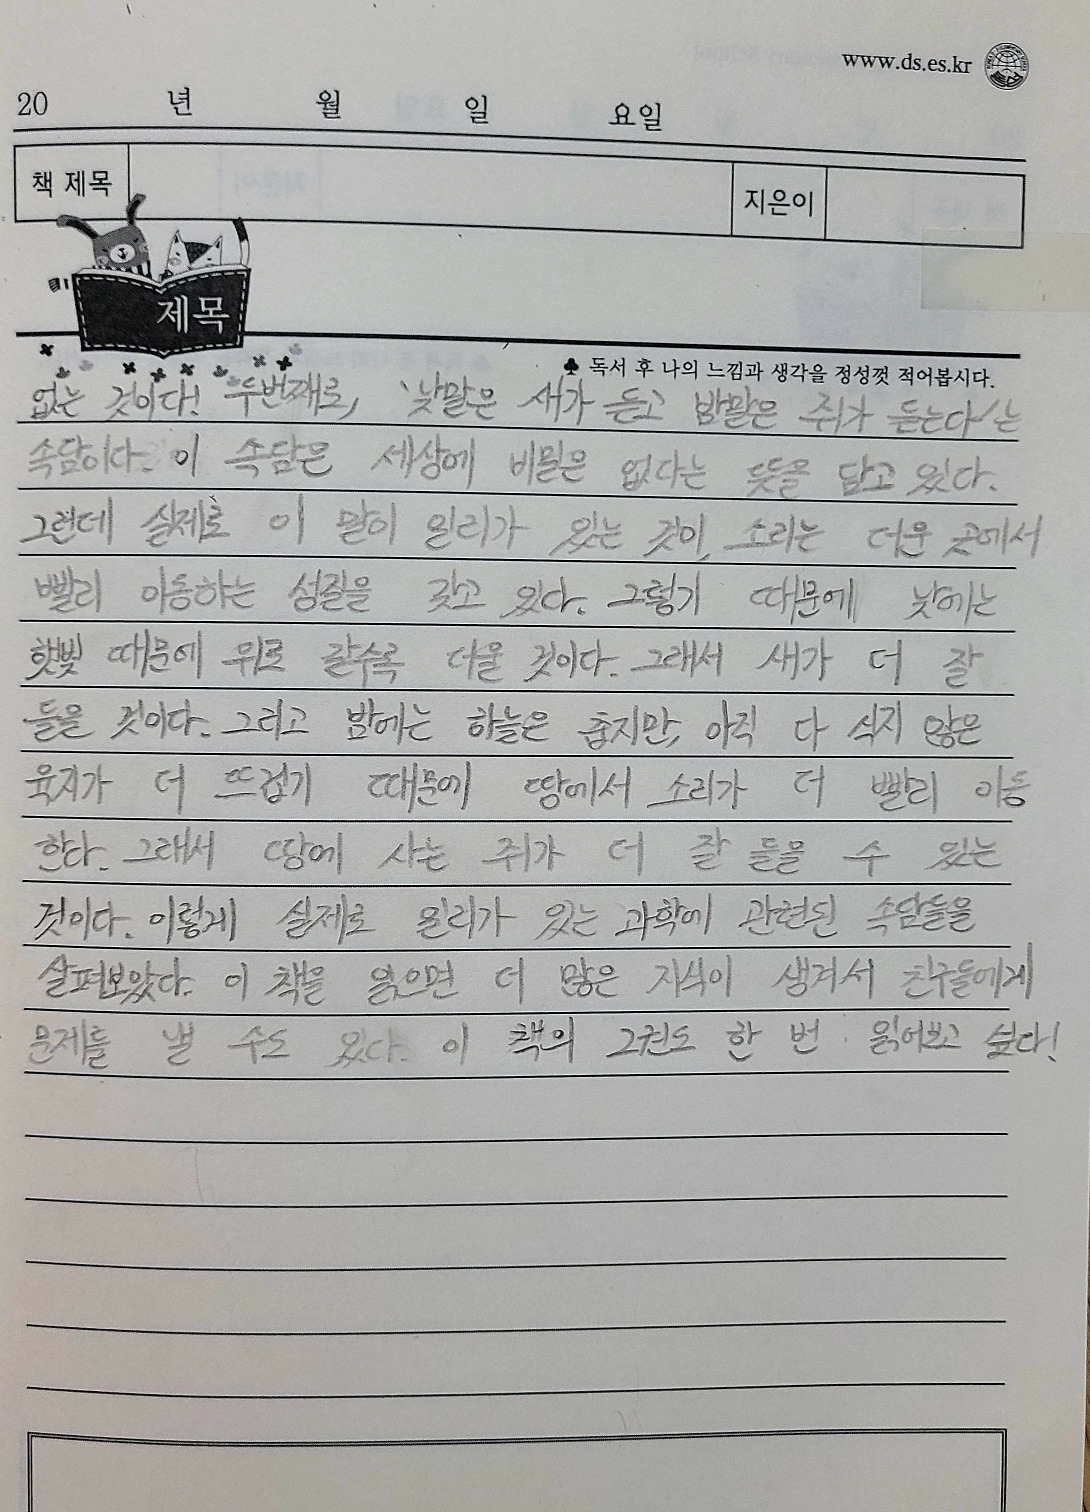 www.ds.es.kr
20 년 월 일 요일
책 제목 지은이
제목
♣ 독서 후 나의 느낌과 생각을 정성껏 적어봅시다.
없는 것이다! 두번째로, '낮말은 새가 듣고 밤말은 쥐가 듣는다'는
속담이다. 이 속담은 세상에 비밀은 없다는 뜻을 담고 있다.
그런데 실제로 이 말이 일리가 있는 것이, 소리는 더운 곳에서
빨리 이동하는 성질을 갖고 있다. 그렇기 때문에 낮에는
햇빛 때문에 위로 갈수록 더울 것이다. 그래서 새가 더 잘
들을 것이다. 그리고 밤에는 하늘은 춥지만, 아직 다 식지 않은
육지가 더 뜨겁기 때문에 땅에서 소리가 더 빨리 이동
한다. 그래서 땅에 사는 쥐가 더 잘 들을 수 있는
것이다. 이렇게 실제로 일리가 있는 과학에 관련된 속담들을
살펴보았다. 이 책을 읽으면 더 많은 지식이 생겨서 친구들에게
문제를 낼 수도 있다. 이 책의 2권도 한 번 읽어보고 싶다!